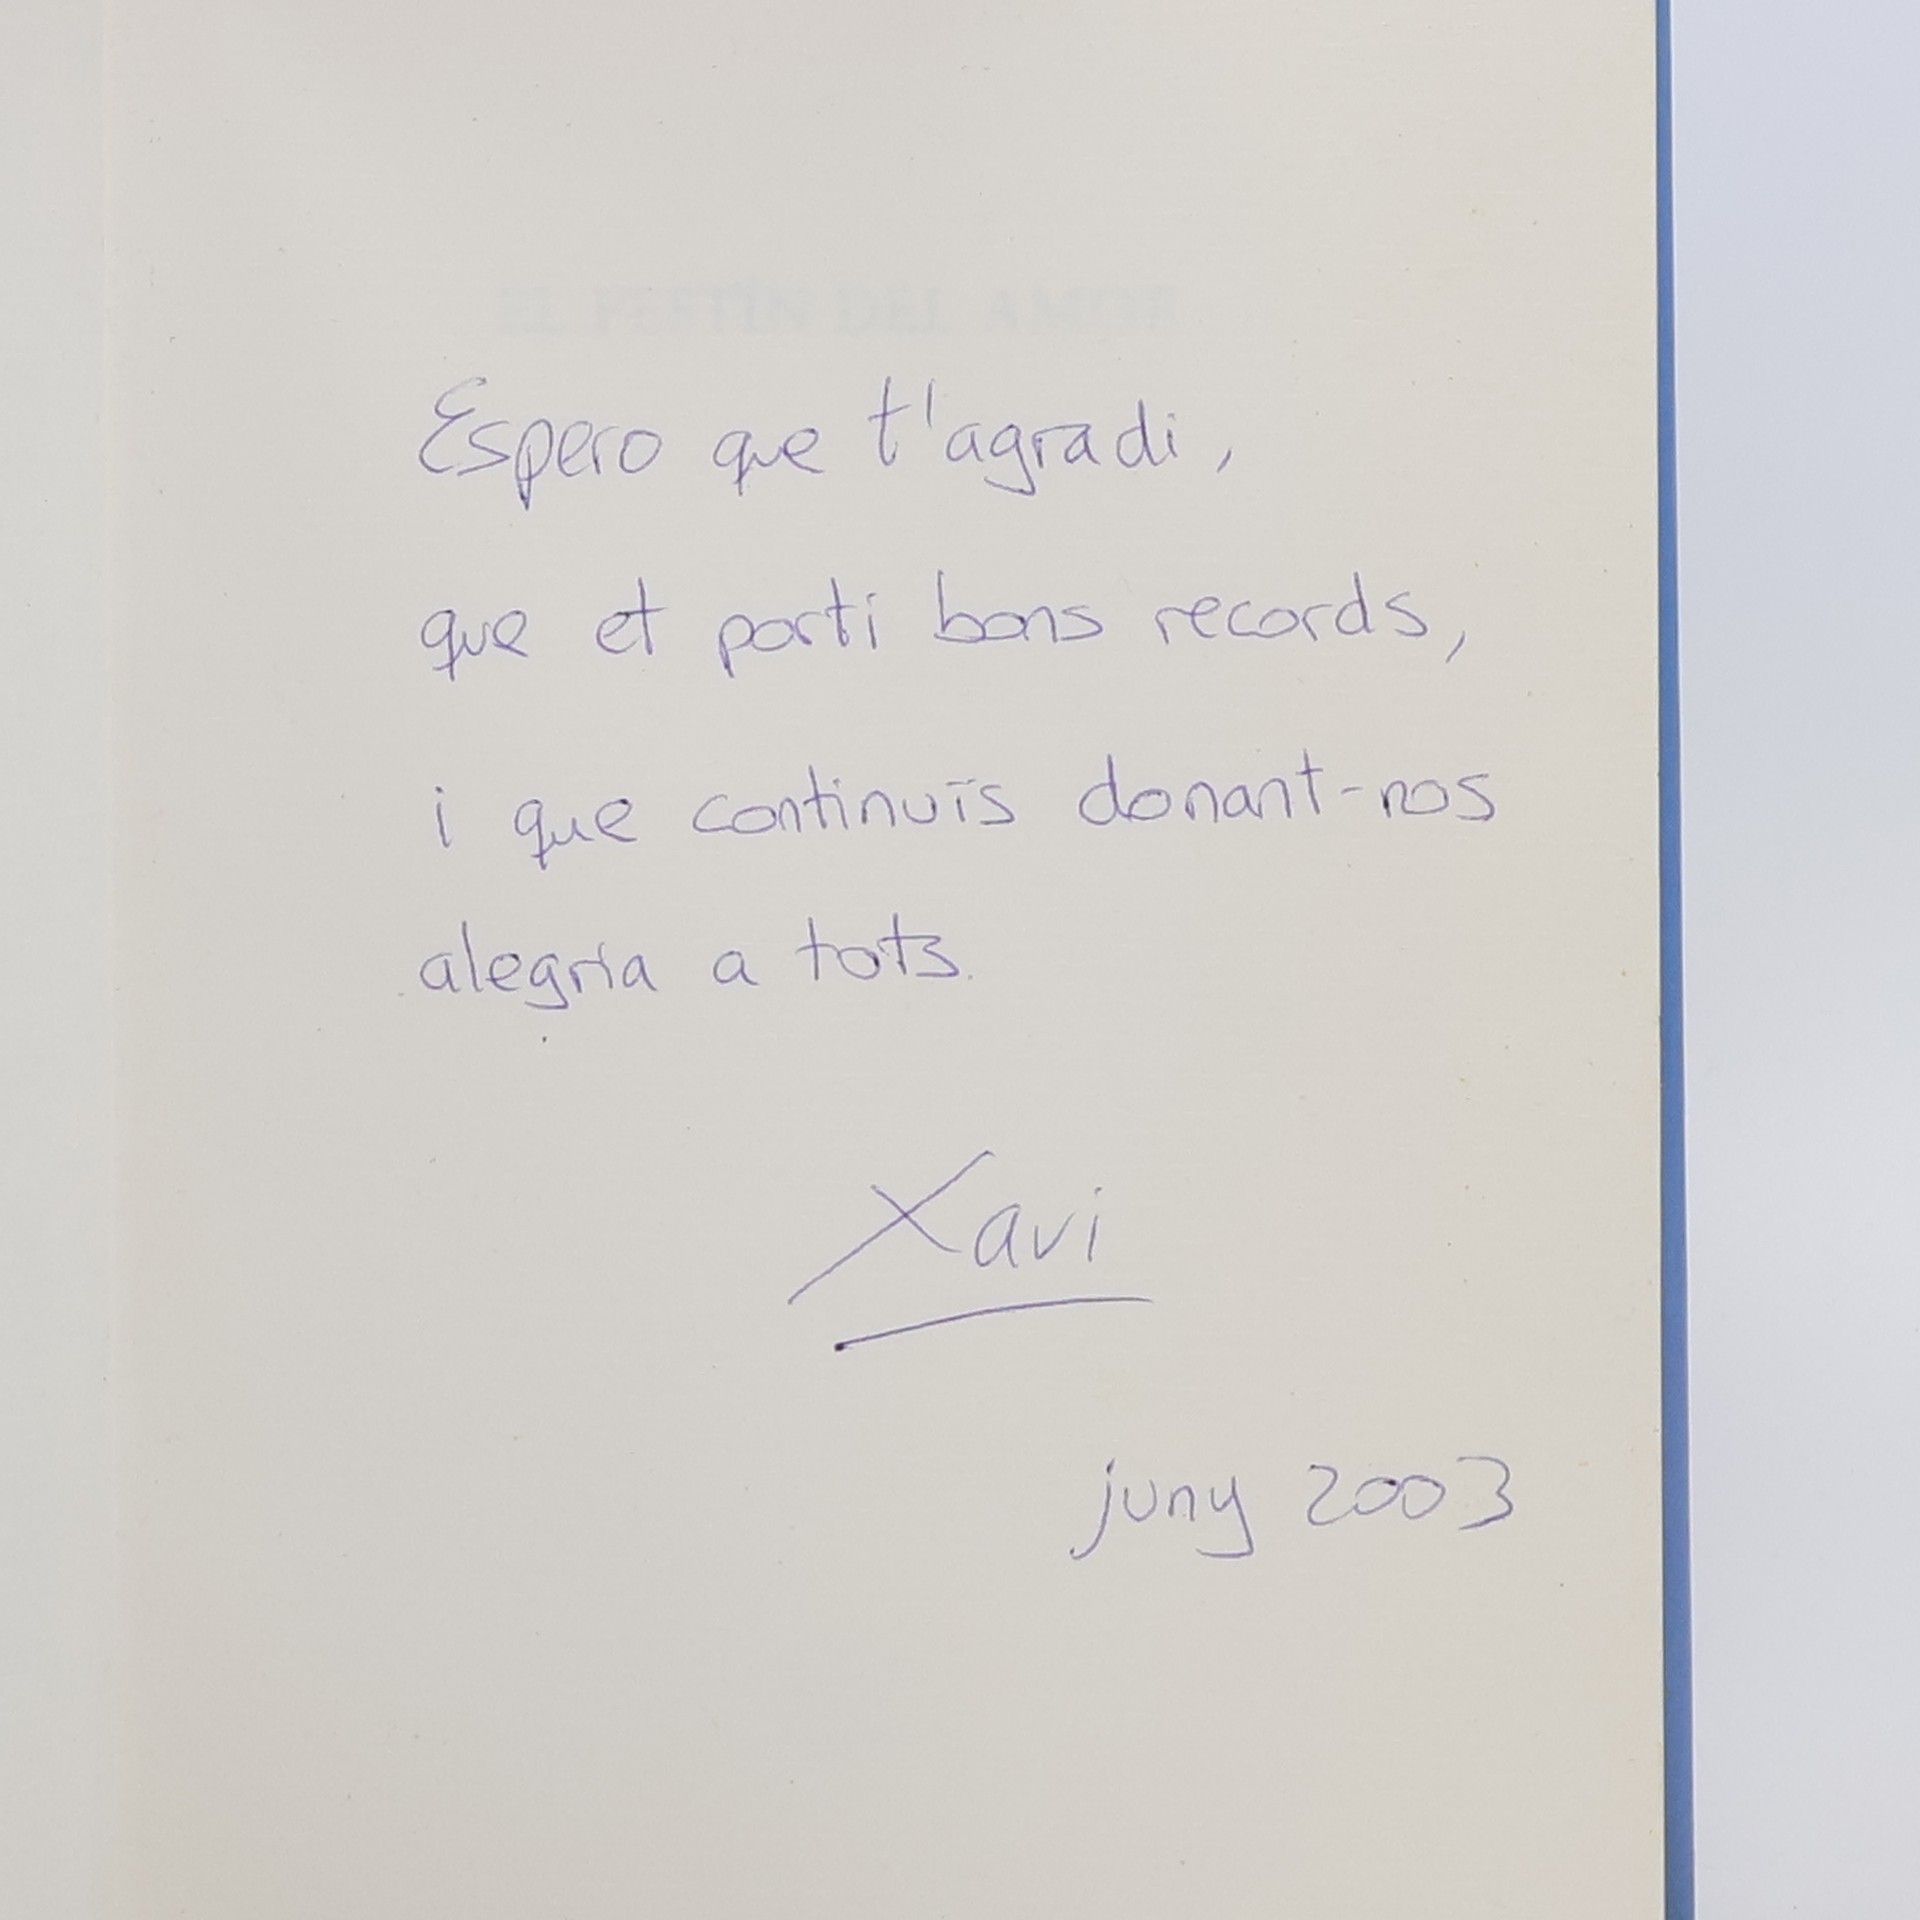 EL FESTÍN DEL AMOR
Espero que t'agradi,
que et porti bons records,
i que continuïs donant-nos
alegria a tots.
Xavi
juny 2003